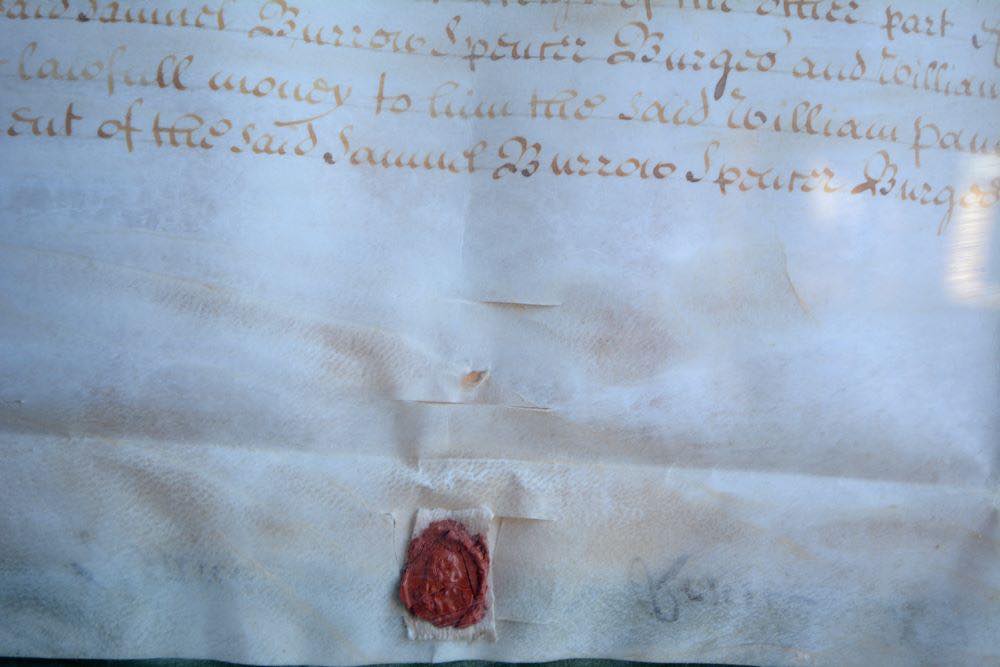 said Samuel Burrow Spencer Burges and William
lawfull money to him the said William
ent of the said Samuel Burrow Spencer Burges
of the other part